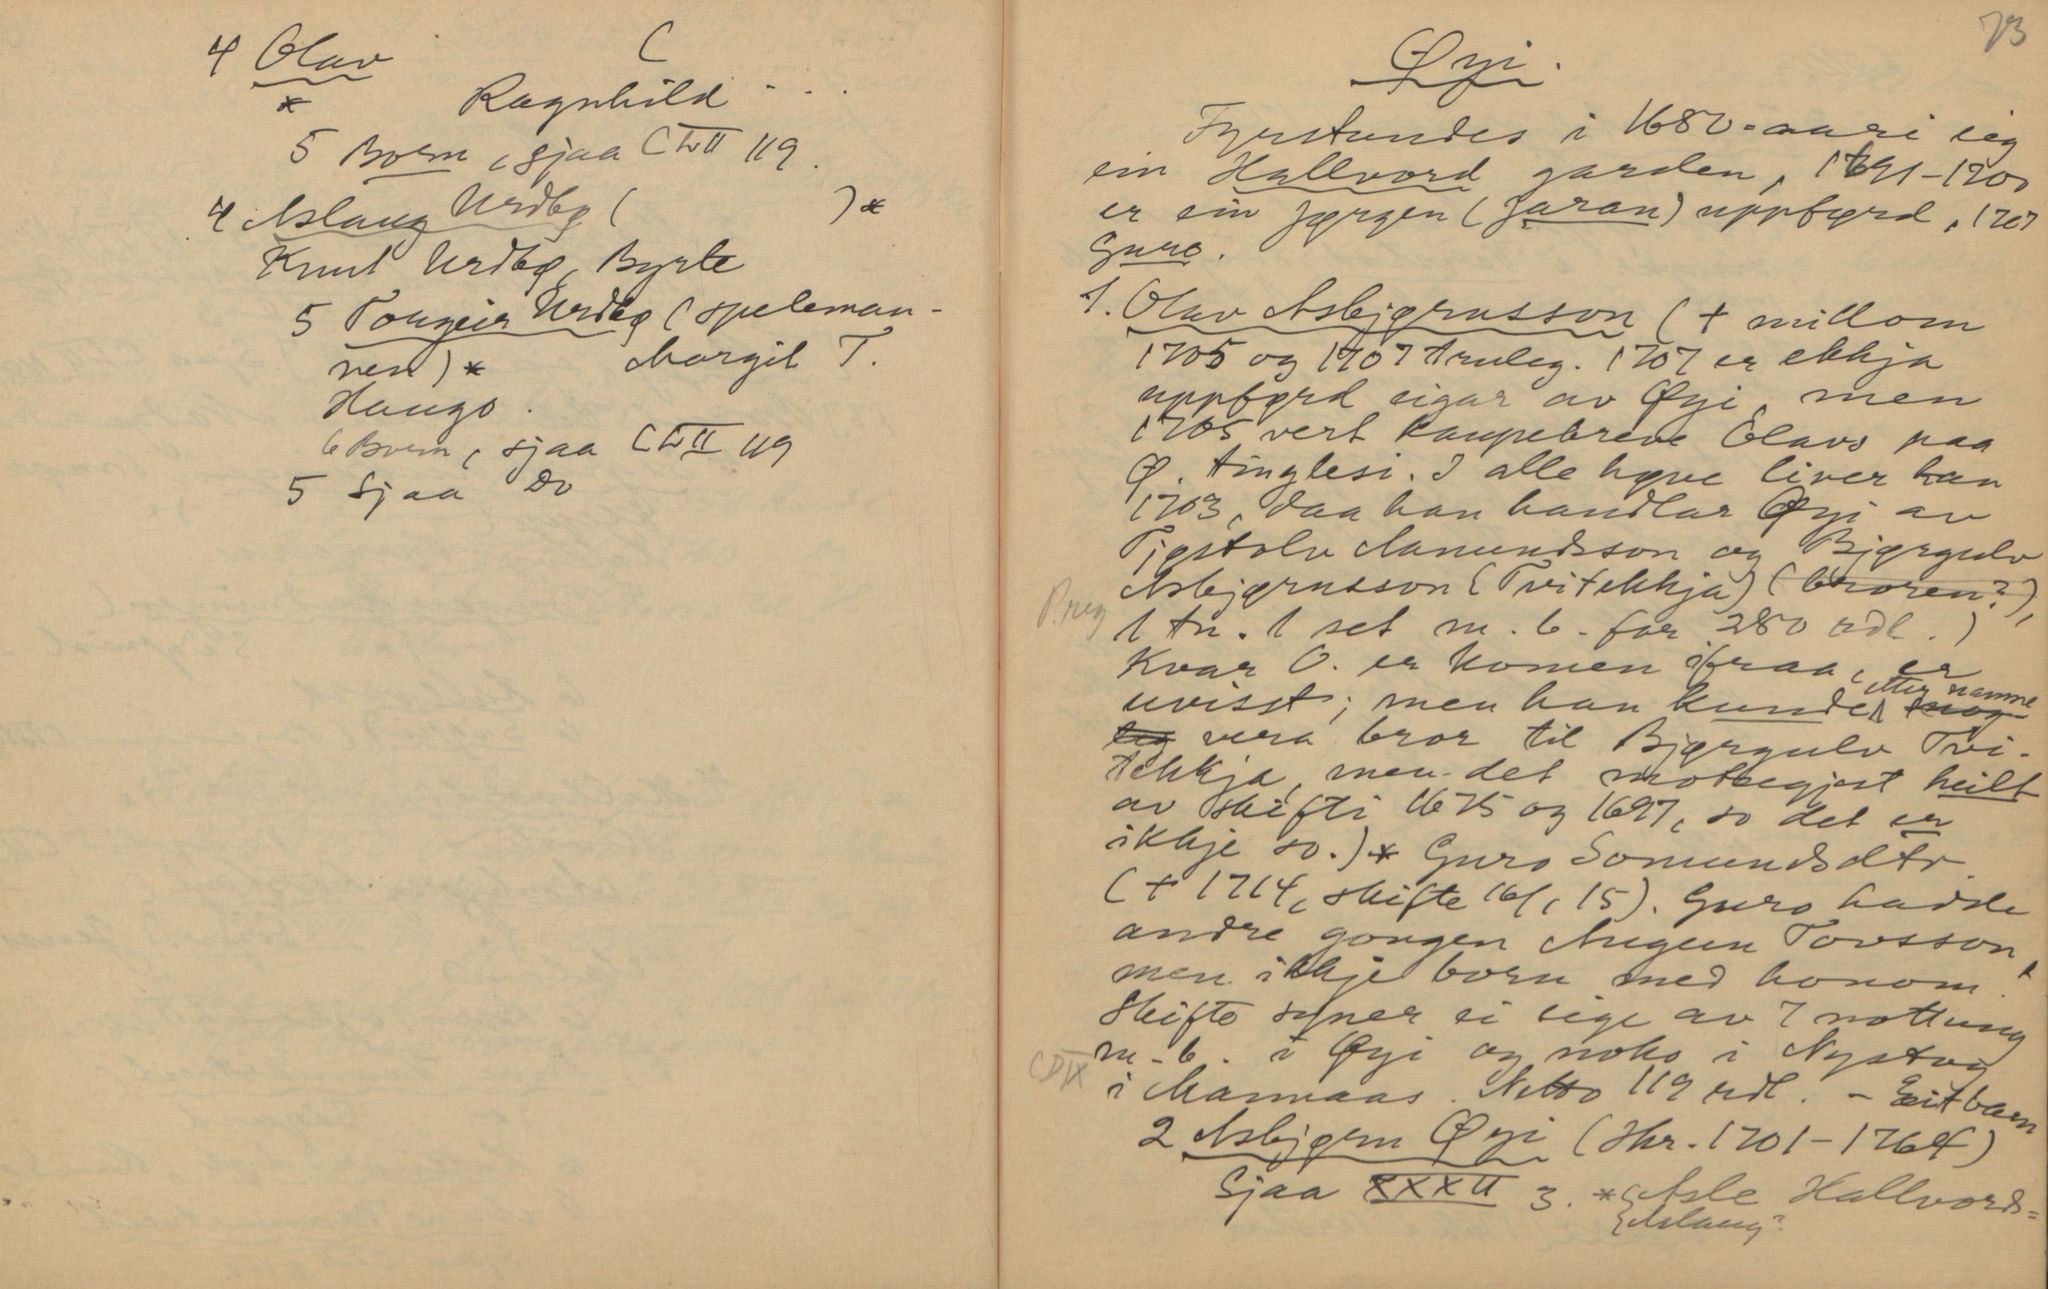 4 Olav (
* Ragnhild - . .
5 Born, sjaa CLVII 119.
4 Aslaug Urdbø ( ) *
Knut Urdbø, Byrte
5 Torgeir Urdbø (speleman-
nen) * Margit T.
Haugo.
6 Born, sjaa CLVII 119
5 Sjaa Do
73
Øyi.
Fyrstundes i 1680-aari eig
ein Hallvord garden, 1691-1700
er ein Jørgen (Jøran) uppførd, 1707
Guro.
1. Olav Asbjørnsson († millom
1705 og 1707 truleg. 1707 er ekkja
uppførd eigar av Øyi, men
1705 vert kaupebreve Olavs paa
Ø. tinglesi. I alle høve liver han
1703, daa han handlar Øyi av
Tjøstolv Aamundsson og Bjørgulv
Asbjørnsson (Tvitekkja) (broren?),
1 tn. 1 set m. b. for 280 rdl.)
P. reg
Kvar O. er komen ifraa, er
uvisst; men han kunde etter namne mog-
leg vera bror til Bjørgulv Tvi-
tekkja, men det motsegjest heilt
av skifti 1675 og 1697, so det er
ikkje so.) * Guro Somundsdtr.
(† 1714, skifte 16/, 15). Guro hadde
andre gongen Augun Tovsson,
men ikkje born med honom.
Skifte syner ei eige av 7 nottung
m. b. i Øyi og noko i Nystog
CDIX
i Mannaas. Netto 119 rdl. - Eit barn
2 Asbjørn Øyi (Skr. 1701-1764)
Sjaa XXXII 3. * {Asle Hallvords=
{Aslaug?